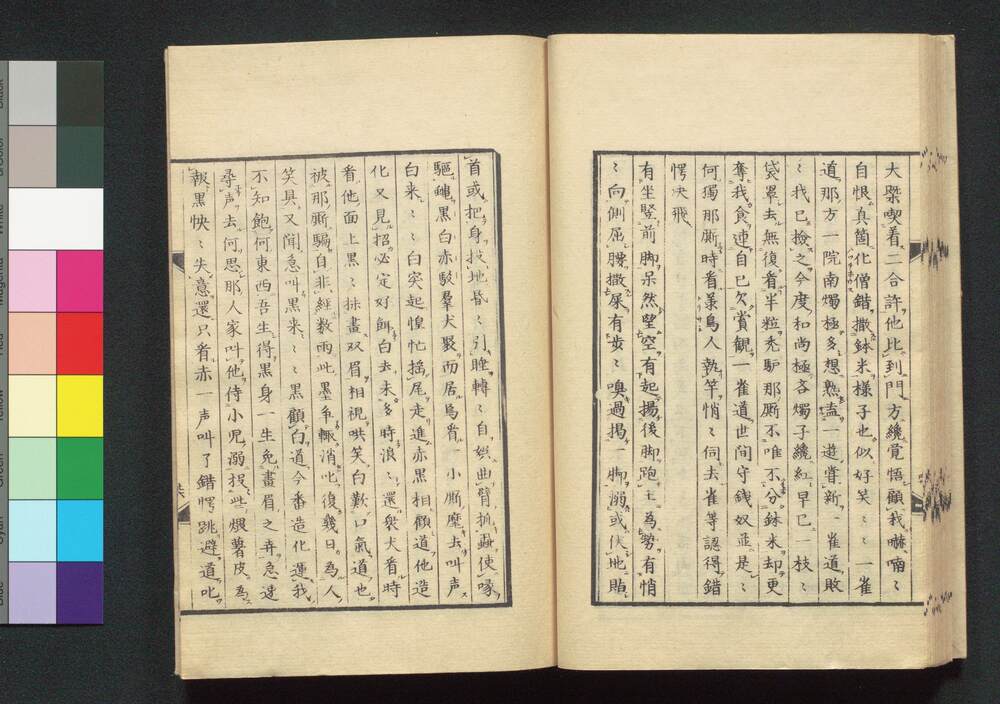 大槩喫着二合許他比到門方纔覺悟顧我嚇喃〻
自恨真箇化僧錯撒鉢米様子也似好笑〻一雀
道那方一院南燭極多想熟盍一遊嘗新一雀道敗
〻我已撿之今度和尚極吝燭子纔紅早已一枝〻
袋罩去無復看半粒禿驢那厮不唯不分鉢米却更
奪我食連自已欠賞觀一雀道世間守錢奴並是〻
何獨那厮時看募鳥人執竿悄〻伺去雀等認得錯
愕決飛
有坐竪前脚呆然望空有起揚後脚跑土為勢有悄
〻向側屈腰撒屎有歩〻嗅過掲一脚溺或伏地貼
首或把身投地昏〻引睡轉〻自娯曲臂抓蟲使喙
驅蠅黒白赤駁羣犬聚而居焉看一小厮麾去叫声
白来〻白突起惶忙揺尾走進赤黒相顧道他造
化又見招必定好餌白去未多時浪〻還衆犬看時
看他面上黒〻抹畫双眉相視哄笑白歎口氣道也
被那厮騙自非經数雨此墨争輙消叱復幾日為人
笑具又聞急叫黒来〻黒顧白道今番造化還我
不知飽何東西吾生得黒身一生免畫眉之弄急逐
尋声去何思那人家叫他侍小児溺投些煨薯皮為
報黒怏〻失意還只看赤一声叫了錯愕跳避道叱